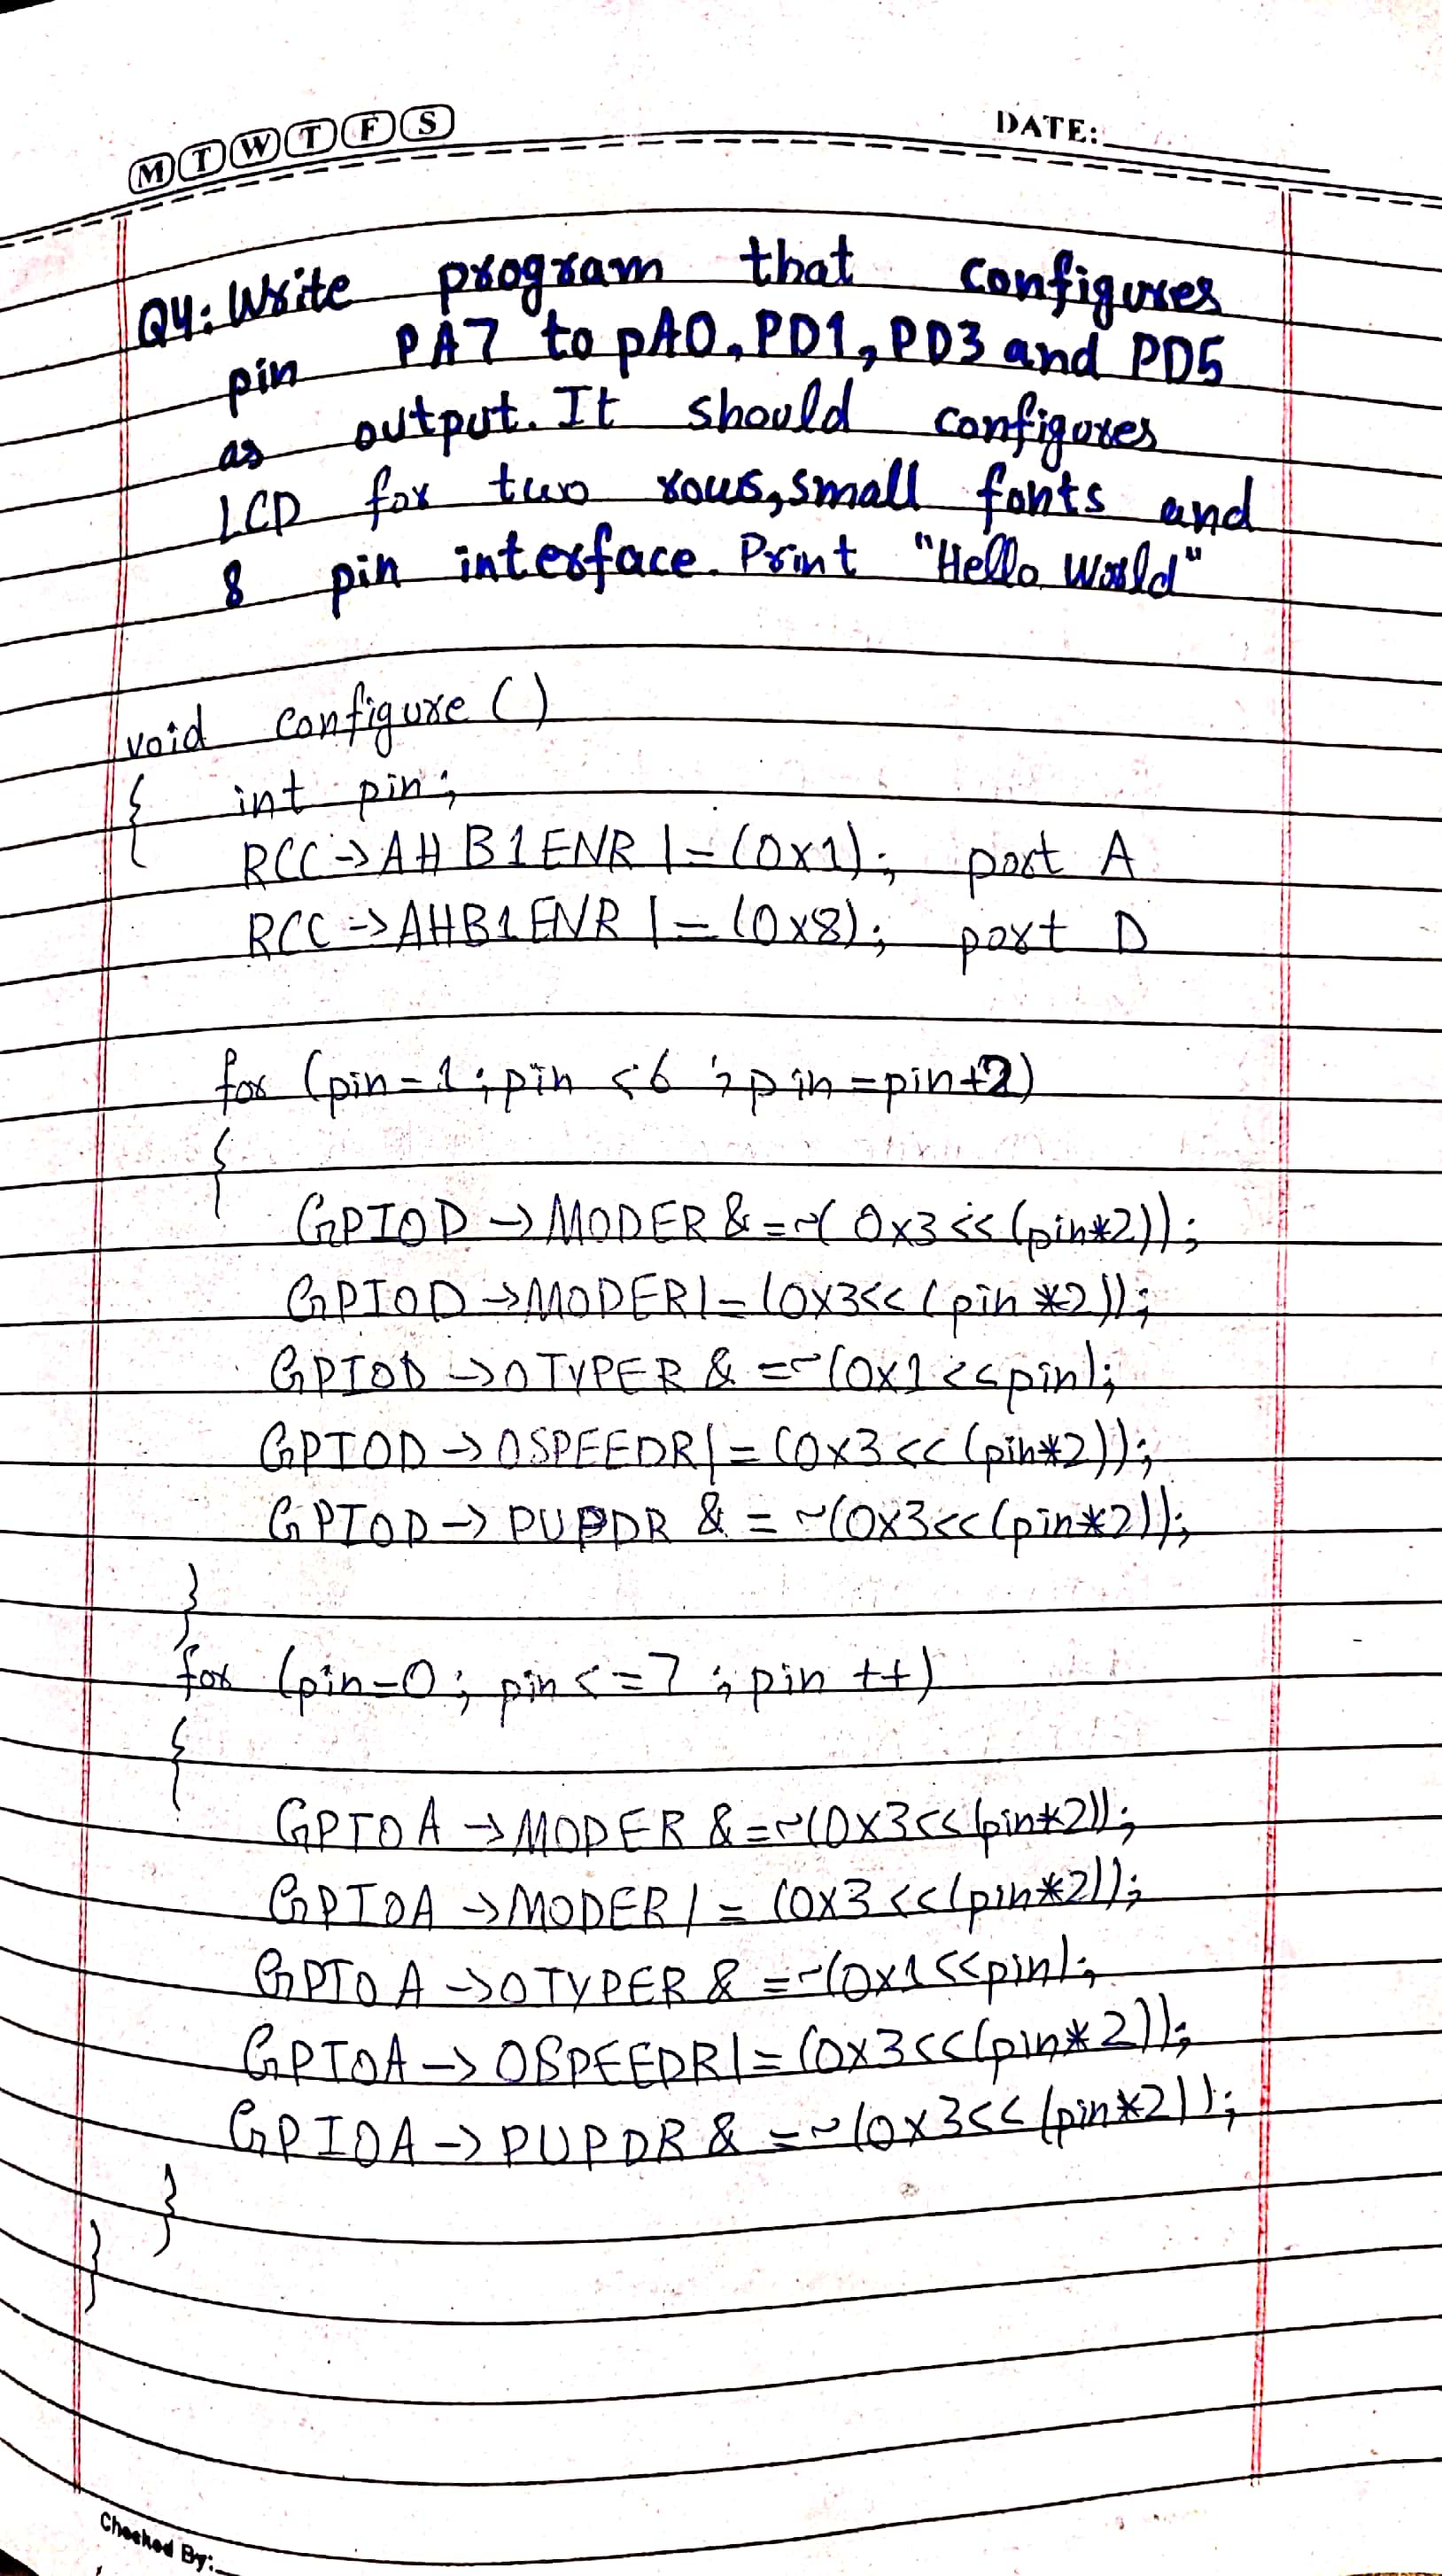 M T W T F S
DATE:
Q4: Write program that configures
pin PA7 to pA0, PD1, PD3 and PD5
as output. It should configures
LCD for two rows, small fonts and
8 pin interface. Print "Hello World"
void configure ()
{ int pin;
RCC->AHB1ENR |= (0x1); port A
RCC->AHB1ENR |= (0x8); port D
for (pin=1; pin <6 ; pin =pin+2)
{
GPIOD -> MODER &=~( 0x3 << (pin*2));
GPIOD ->MODER|= (0x3<< (pin *2));
GPIOD ->OTYPER & =~(0x1<<pin);
GPIOD -> OSPEEDR|= (0x3 << (pin*2));
GPIOD -> PUPDR & = ~(0x3<< (pin*2));
}
for (pin=0; pin <=7 ; pin ++)
{
GPIOA -> MODER &=~(0x3<< (pin*2));
GPIOA -> MODER |= (0x3 <<(pin*2));
GPIOA ->OTYPER & =~(0x1<<pin);
GPIOA -> OSPEEDR|= (0x3<<(pin*2));
GPIOA -> PUPDR & =~(0x3<< (pin*2));
}
}
Checked By: